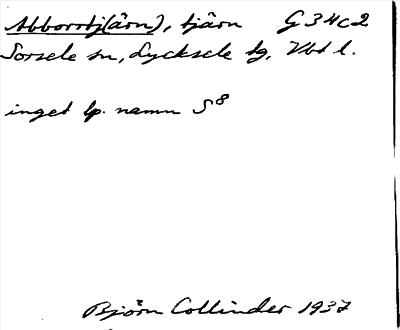 Abborrtj(ärn), tjärn G 34c2
Sorsele sn, Lycksele tg, Vbt l.
inget lp. namn S8
Björn Collinder 1937